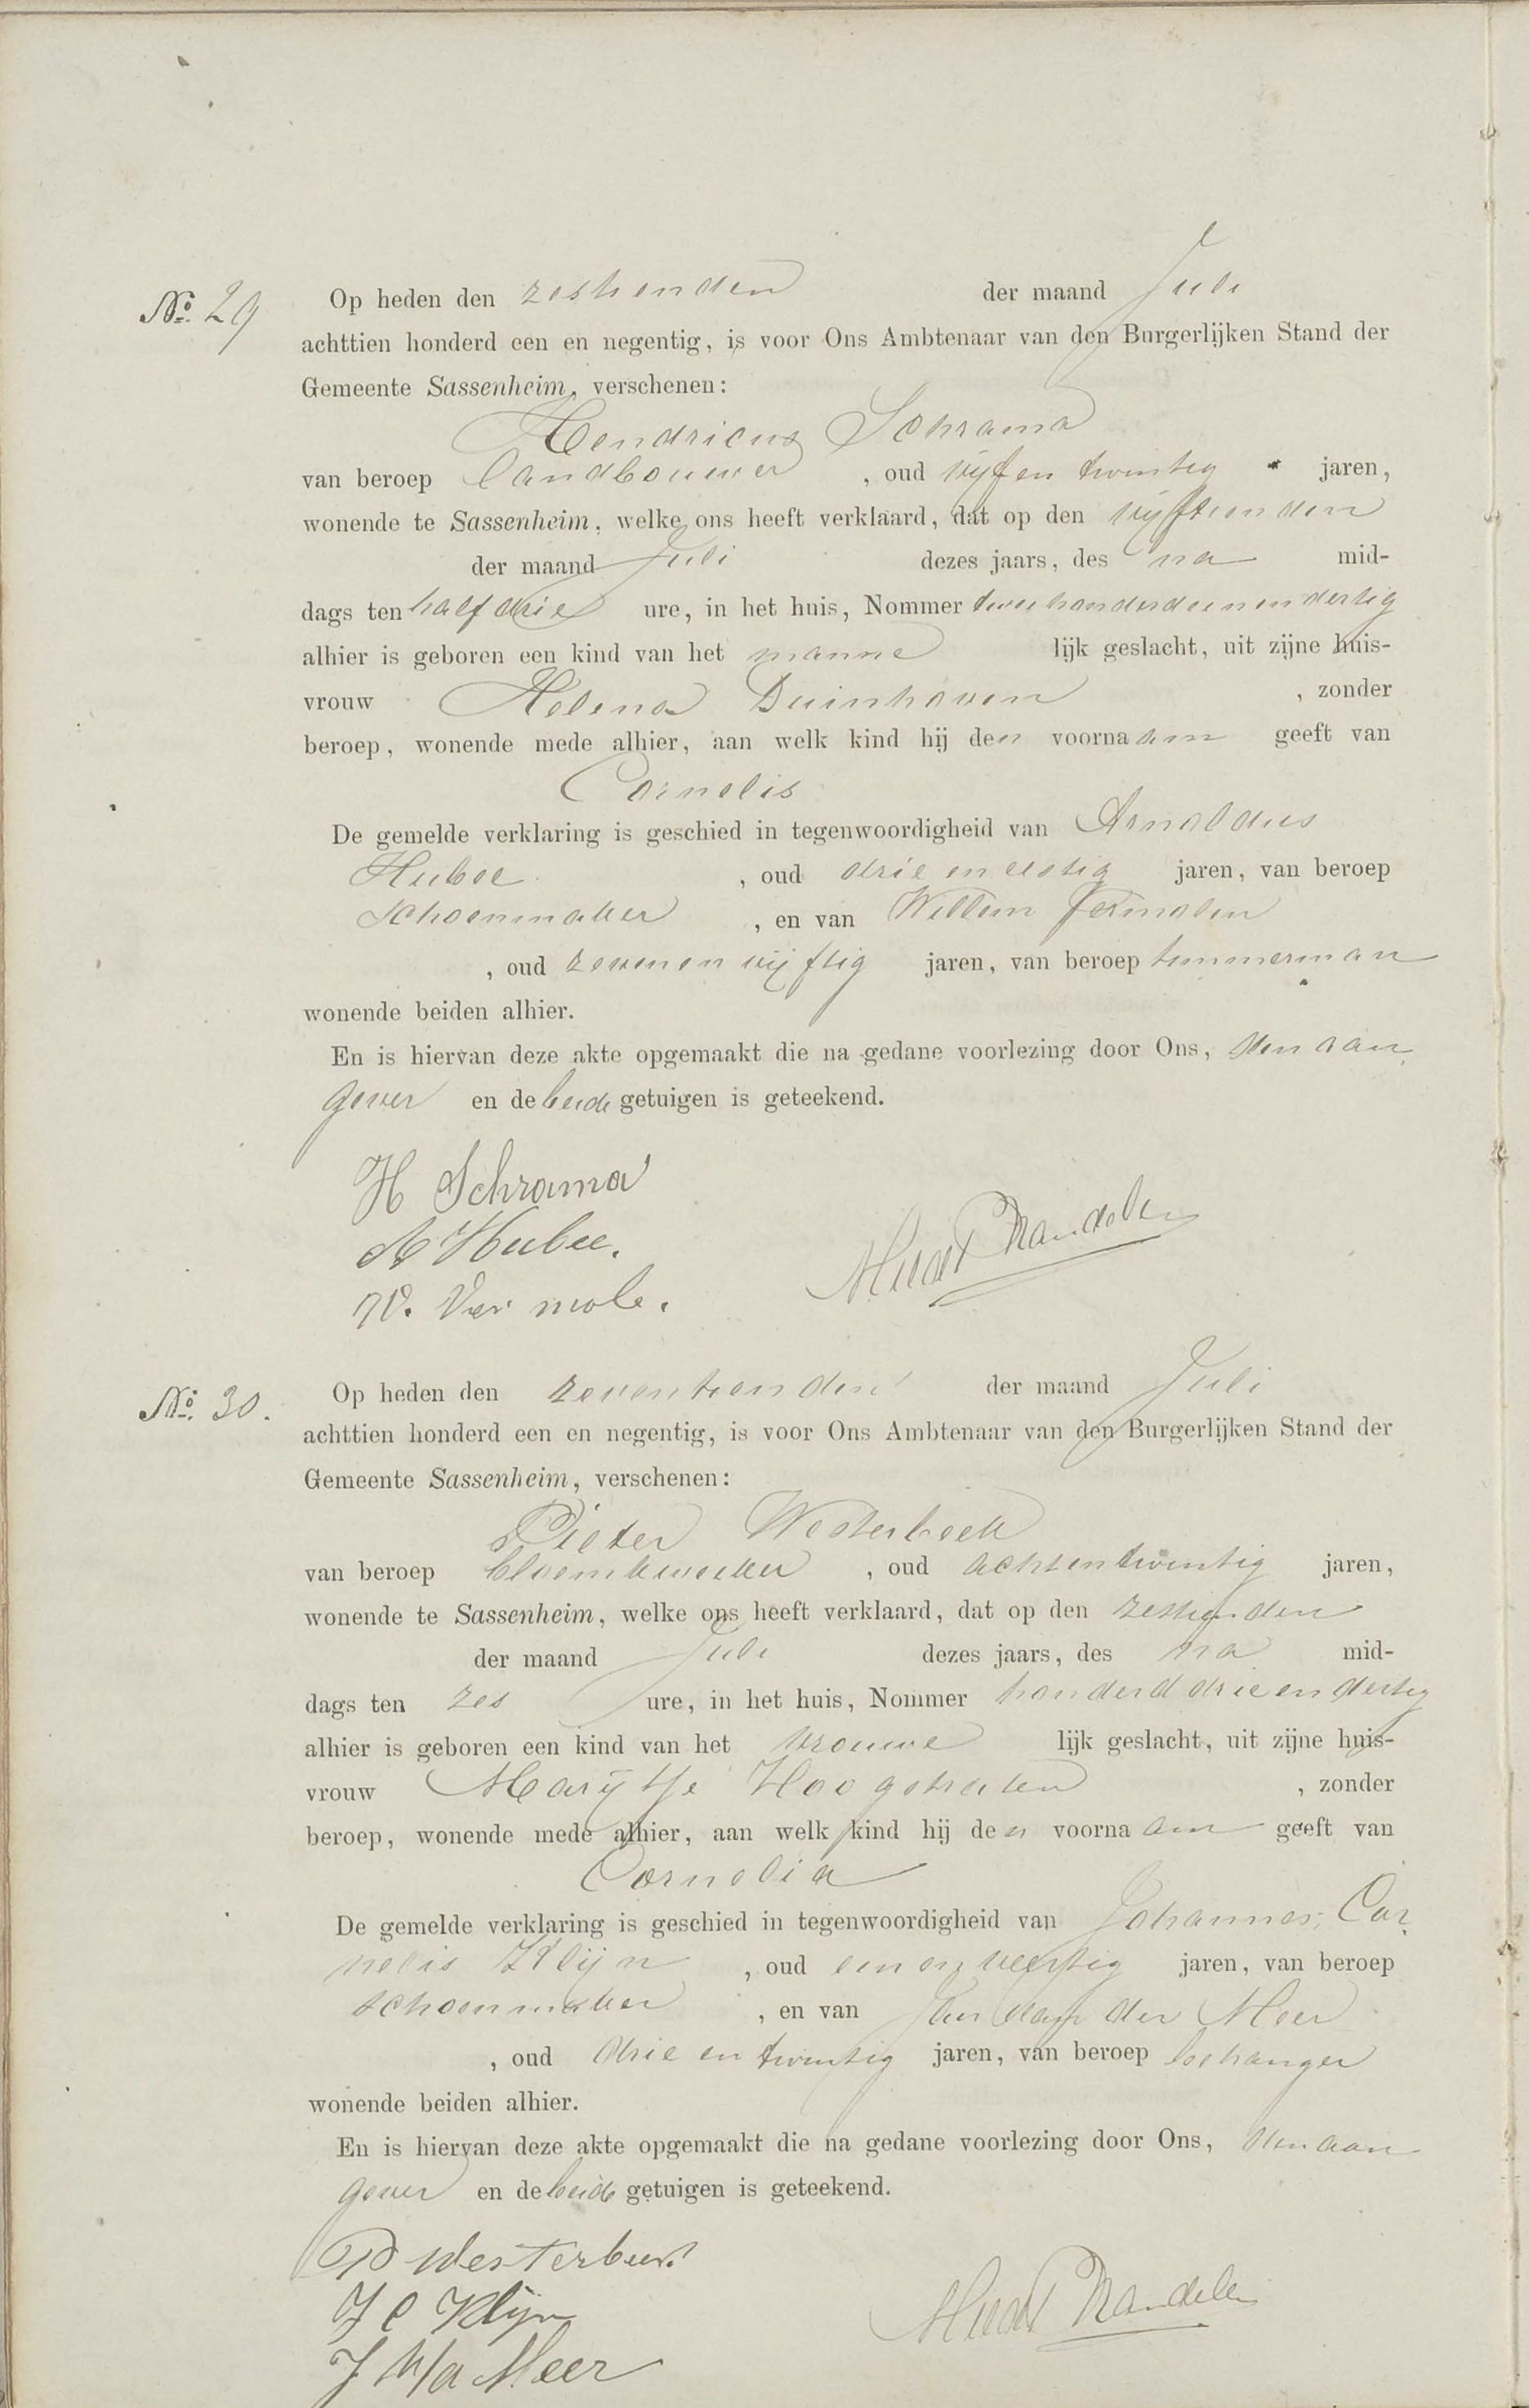 No. 29 Op heden den zestienden der maand Juli
achttien honderd een en negentig, is voor Ons Ambtenaar van den Burgerlijken Stand der
Gemeente Sassenheim, verschenen:
Hendricus Schrama
van beroep landbouwer , oud vijf en twintig jaren,
wonende te Sassenheim, welke ons heeft verklaard, dat op den vijftienden
der maand Juli dezes jaars, des na mid-
dags ten half drie ure, in het huis, Nommer tweehonderdeenendertig
alhier is geboren een kind van het manne lijk geslacht, uit zijne huis-
vrouw Helena Duinhoven , zonder
beroep, wonende mede alhier, aan welk kind hij den voornaam geeft van
Cornelis
De gemelde verklaring is geschied in tegenwoordigheid van Arnoldus
Hubee , oud drie en jaren, van beroep
schoenmaker , en van Willem Vermolen
, oud zevenenvijftig jaren, van beroep timmerman
wonende beiden alhier.
En is hiervan deze akte opgemaakt die na gedane voorlezing door Ons, den aan
gever en de beide getuigen is geteekend.
H Schrama
A Hubee.
W. Ver mole.
No. 30. Op heden den zeventienden der maand Juli
achttien honderd een en negentig, is voor Ons Ambtenaar van den Burgerlijken Stand der
Gemeente Sassenheim, verschenen:
Pieter Westerbeek
van beroep bloemkweeker , oud achtentwintig jaren,
wonende te Sassenheim, welke ons heeft verklaard, dat op den zestienden
der maand Juli dezes jaars, des na mid-
dags ten zes ure, in het huis, Nommer honderd drieendertig
alhier is geboren een kind van het vrouwe lijk geslacht, uit zijne huis-
vrouw Marijtje Hoogstraten , zonder
beroep, wonende mede alhier, aan welk kind hij den voornaam geeft van
Cornelia
De gemelde verklaring is geschied in tegenwoordigheid van Johannes Cor
nelis Klijn , oud een en veertig jaren, van beroep
schoenmaker , en van Jan van der Meer
, oud drie en twintig jaren, van beroep behanger
wonende beiden alhier.
En is hiervan deze akte opgemaakt die na gedane voorlezing door Ons, den aan
gever en de beide getuigen is geteekend.
P Westerbeek
J C Klijn
J v/d Meer